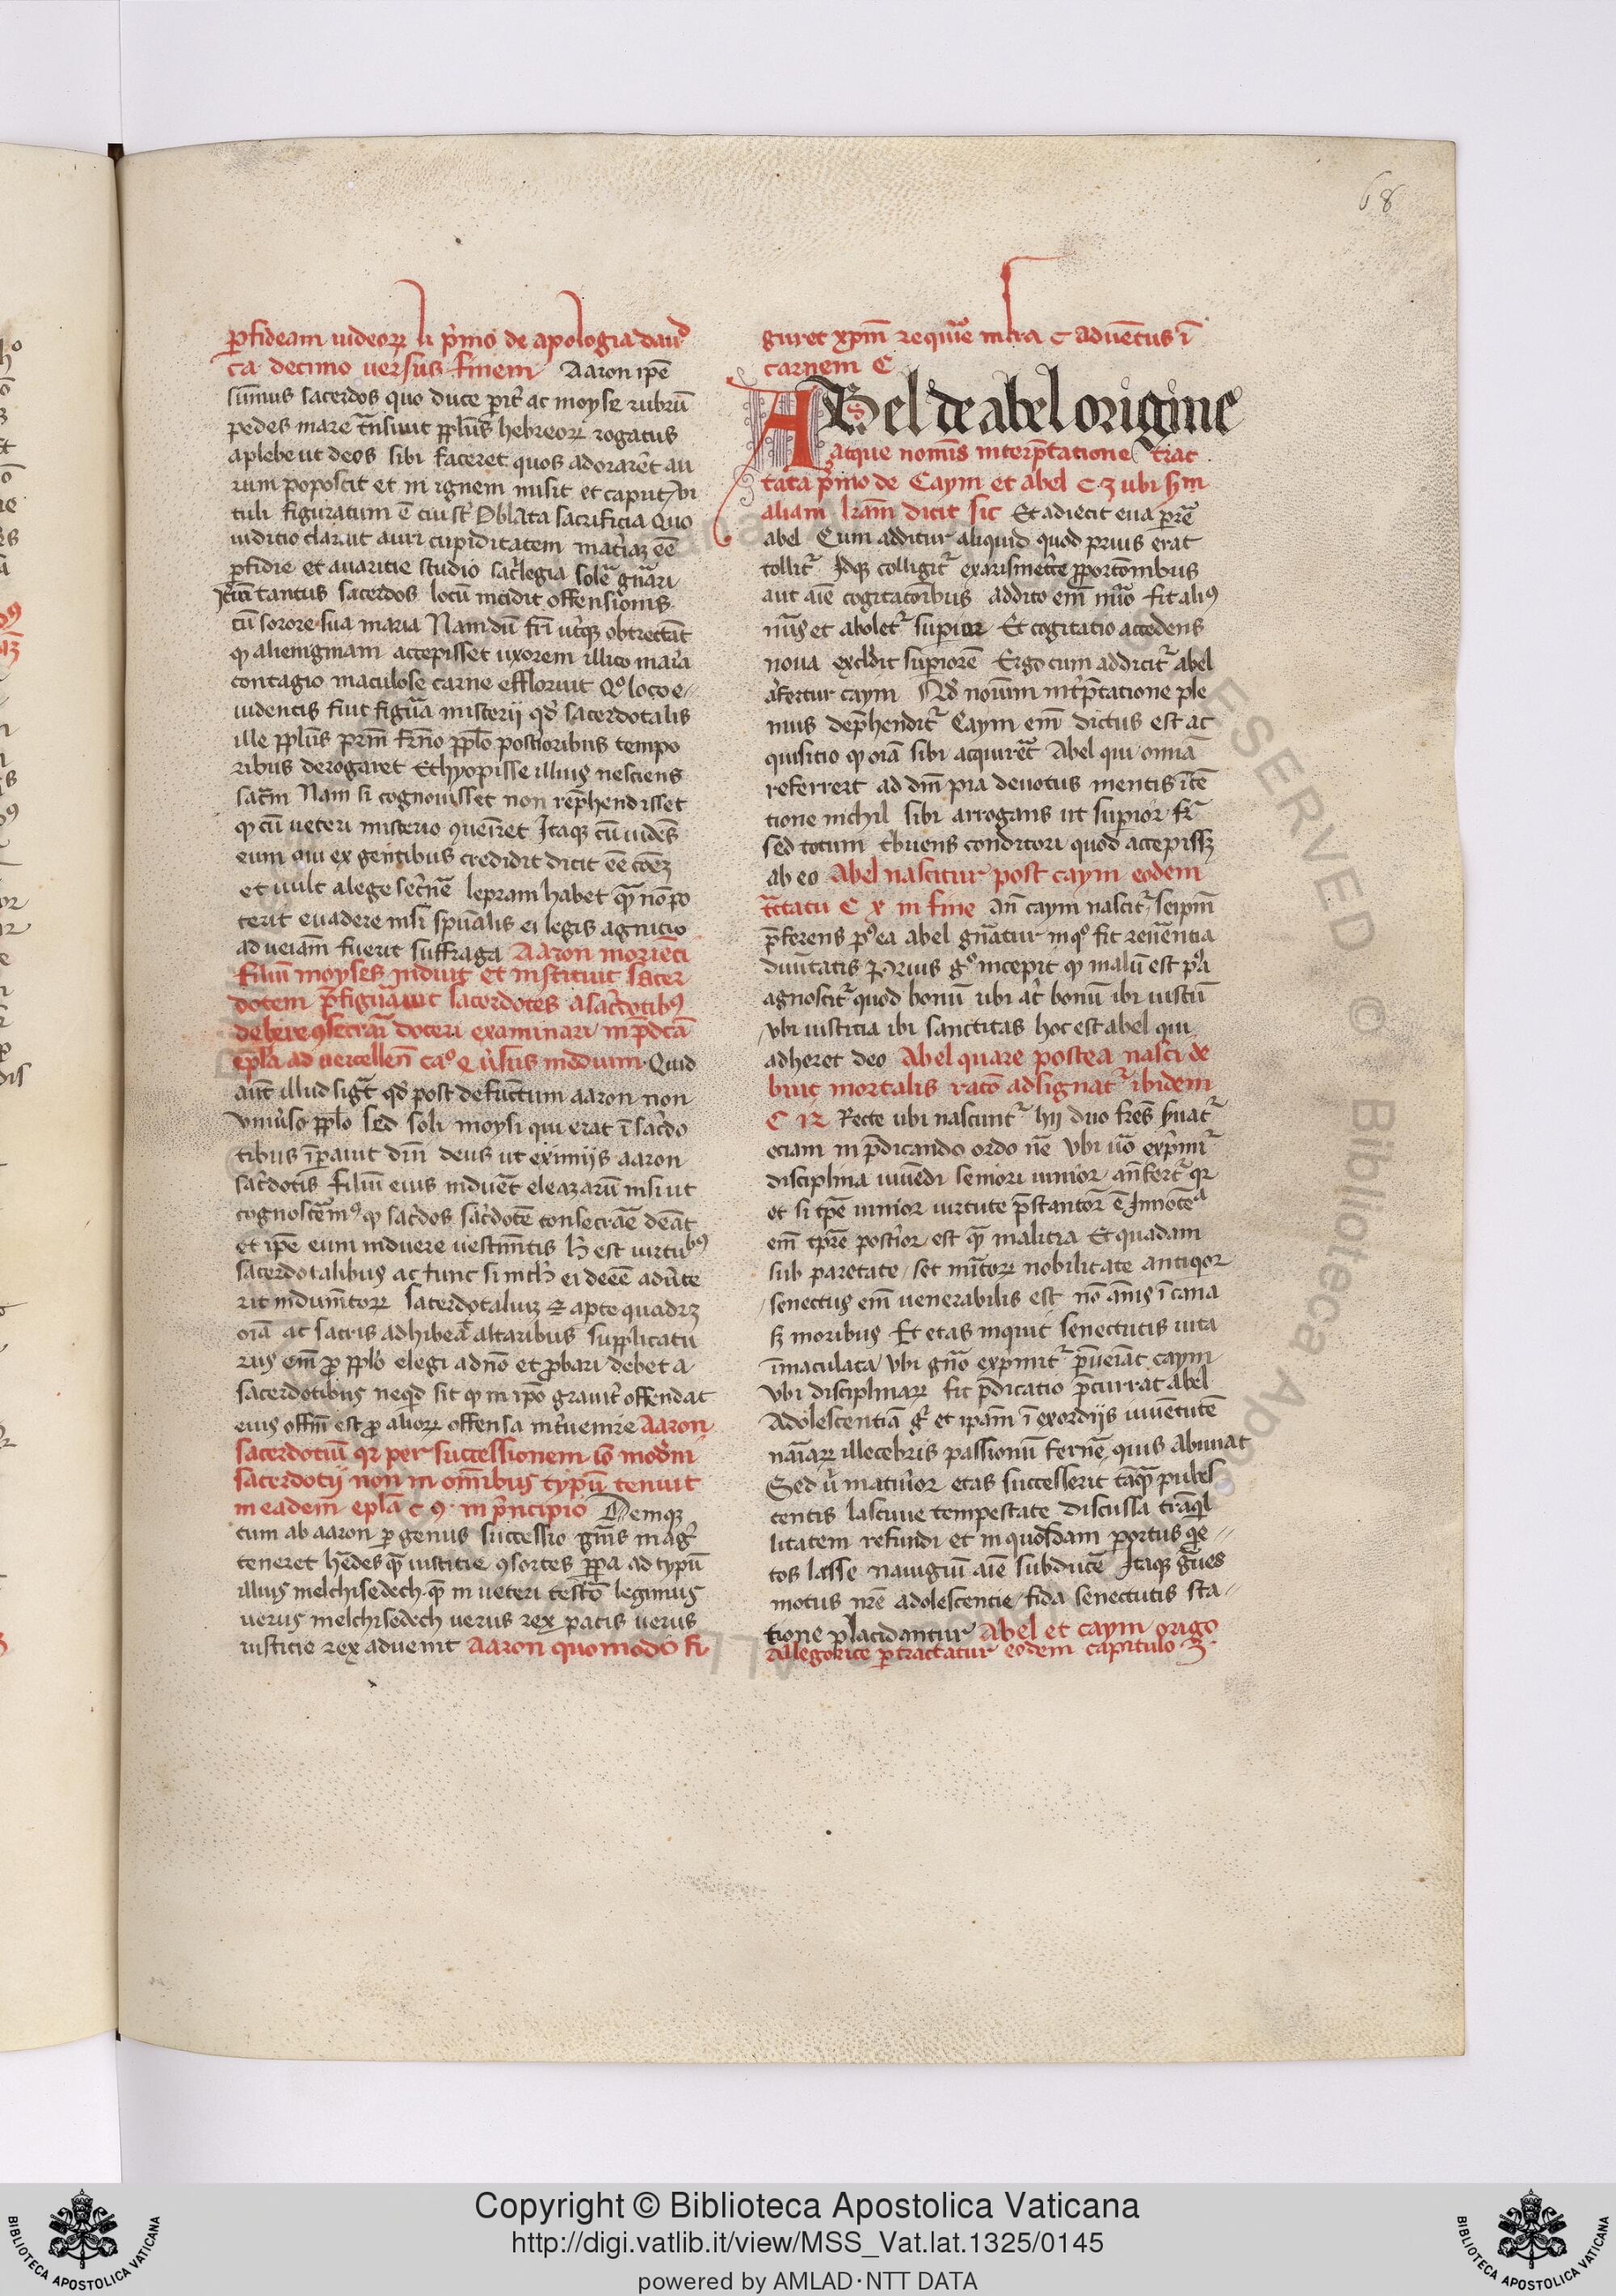 68
ꝑfideam iudeoꝝ li pͥmo de apologia dauid
ca decimo uersus finem Aaron ipē
sūmus sacerdos quo duce pariter ac moyse rubrū
pedes mare trāsiuit pplūs hebreoꝝ rogatus
aplebe ut deos sibi faceret quos adorarēt au
rum poposcit et in ignem misit et caput vi
tuli figuratum ē cui st Oblata sacrificia Quo
iuditio claruit auri cupiditatem matͥaꝫ eē
ꝑfidie et auaritie studio sacͥlegia solē gnāri
tantus sacerdos locū incidit offensionis
cū sorore sua maria Nam dū frī utͥqꝫ obtrectāt
ꝙ alienigenam accepisset uxorem illico maria
contagio maculose carne effloruit Qͦ loco e
uidentis fiut figūa misterij qd sacerdotalis
ille pplūs prīm frīno pplo posterioribus tempo
ribus derogaret Ethyopisse illius nesciens
sacrm Nam si cognouisset non reprehendisset
ꝙ cū ueteri misterio ꝯueiret Itaqꝫ cū uidēs
eum qui ex gentibus credidit dicit eē coēꝫ
et uult alege sec̄nē lepram habet quā nō po
terit euadere nisi spūalis ei legis agnitio
ad ueiām fuerit suffraga Aaron moriēti
filiū moyses induit et instituit sacer
dotem p̄figūauit sacerdotes a sac̄dotibꝰ
debere ꝯsecrāi doceri examinari in p̄dcā
epla ad vercellen̄ caͦ e uͥsus medium Quid
aut illud sigͣt qd post defunctum aaron non
vniūso pplo sed soli moysi qui erat ī sac̄do
tibus īpauit dn̄s deus ut eximijs aaron
sac̄dotis filiū eius induēt eleazarū nisi ut
cognoscēmꝰ ꝙ sac̄dos sac̄dotē consecrāe deāt
et ipē eum induere uestmn̄tis h est uirtubꝰ
sacerdotalibus ac tunc si nich ei deeē aduͥte
rit indumn̄toꝝ sacerdotaluꝫ ꝛ apte quadrꝫ
oīa ac sacris adhibeat altaribus supplicatu
rus em̄ ꝓ pplo elegi a dn̄o et ꝓbari debet a
sacerdotibus neqd sit ꝙ in ipō grauit̄ offendat
eius offm̄ est ꝓ alioꝝ offensa int̄uenire Aaron
sacerdotiū qr per successionem iō modͥni
sacerdotij non in omībus typū tenuit
in eadem epla c 9 in pͥncipio Deniqꝫ
cum ab aaron ꝑ genus successio gn̄is magͥ
teneret hēdes quā iustitie ꝯsortes ppa ad typū
illius melchisedech quē in ueteri testō legimus
uerus melchisedech uerus rex pacis uerus
iusticie rex aduenit Aaron quomodo fi
guret xpm̄ require infra c aduētus ī
carnem C
ABel de abel origine
atque nomis interpͣtatione trac
tata pͥmo de Caym et abel c 3 ubi scm
aliam lrām dicit sic Et adiecit eua parē
abel Cum additur aliquid quod prius erat
tollitͬ Idqꝫ colligitͬ exarismetce pportonibus
aut aīe cogitatōibus addito em̄ nūo fit aliꝰ
nūs et aboletͬ supior Et cogitatio accedens
noua excludit superiorē Ergo cum addicitͬ abel
aufertur caym Qd nouīm int̄ptatione ple
nius deprehenditͬ Caym em̄ dictus est ac
quisitio ꝙ oīa sibi acquiret Abel qui omīa
referrert ad dm̄ pia deuotus mentis ītē
tione nichil sibi arrogans ut supior fr̄
sed totum tbuens conditori quod accepissꝫ
ab eo Abel nascitur post caym eodem
tctatu C x in fine Añ caym nascitͬ seipm̄
p̄ferens pꝰea abel gn̄atur in qͦ fit reuēntia
diuītatis Prius gͦ incepit ꝙ malū est pꝰa
agnoscitͬ quod bonū ubi at̄ bonū ibi iustū
vbi iusticia ibi sanctitas hoc est abel qui
adheret deo Abel quare postea nasci de
buit mortalis ratō adsignatͬ ibidem
C 12 Recte ubi nascuntͬ hij duo frēs suatͬ
eciam in p̄dicando ordo nē vbi uō expͥmiͬ
disciplina uiuēdi seniori iunior añfertͬ qr
et si tpē iunior uirtute p̄stantor ē Innocēcͣ
em̄ tpre posterior est quā malicia Et quadam
sub parietate set mītoꝝ nobilitate antiqͦr
senectus em̄ uenerabilis est nō ānis ī cana
sꝫ moribus Et etas inquit senectutis uita
īmaculata vbi gn̄o expͥmitͬ p̄ueniat caym
vbi disciplinaꝝ fit p̄dicatio p̄currat abel
Adolescentiā gͥ et ipam̄ ī exordijs iuuētutē
nāiaꝝ illecebris passionū feruē quis abnuat
Sed uͥ maturior etas successerit tāquā pubes
centis lasciue tempestate discussa trāql
litatem refundi et in quosdam portus qͥe
tos lasse nauigiū aīe subducē Itaqꝫ gͣues
motus nrē adolescentie fida senectutis sta
tione placidantur Abel et caym origo
allegorice ꝑtractatur eodem capitulo 3
Copyright © Biblioteca Apostolica Vaticana
http://digi.vatlib.it/view/MSS_Vat.lat.1325/0145
powered by AMLAD·NTT DATA